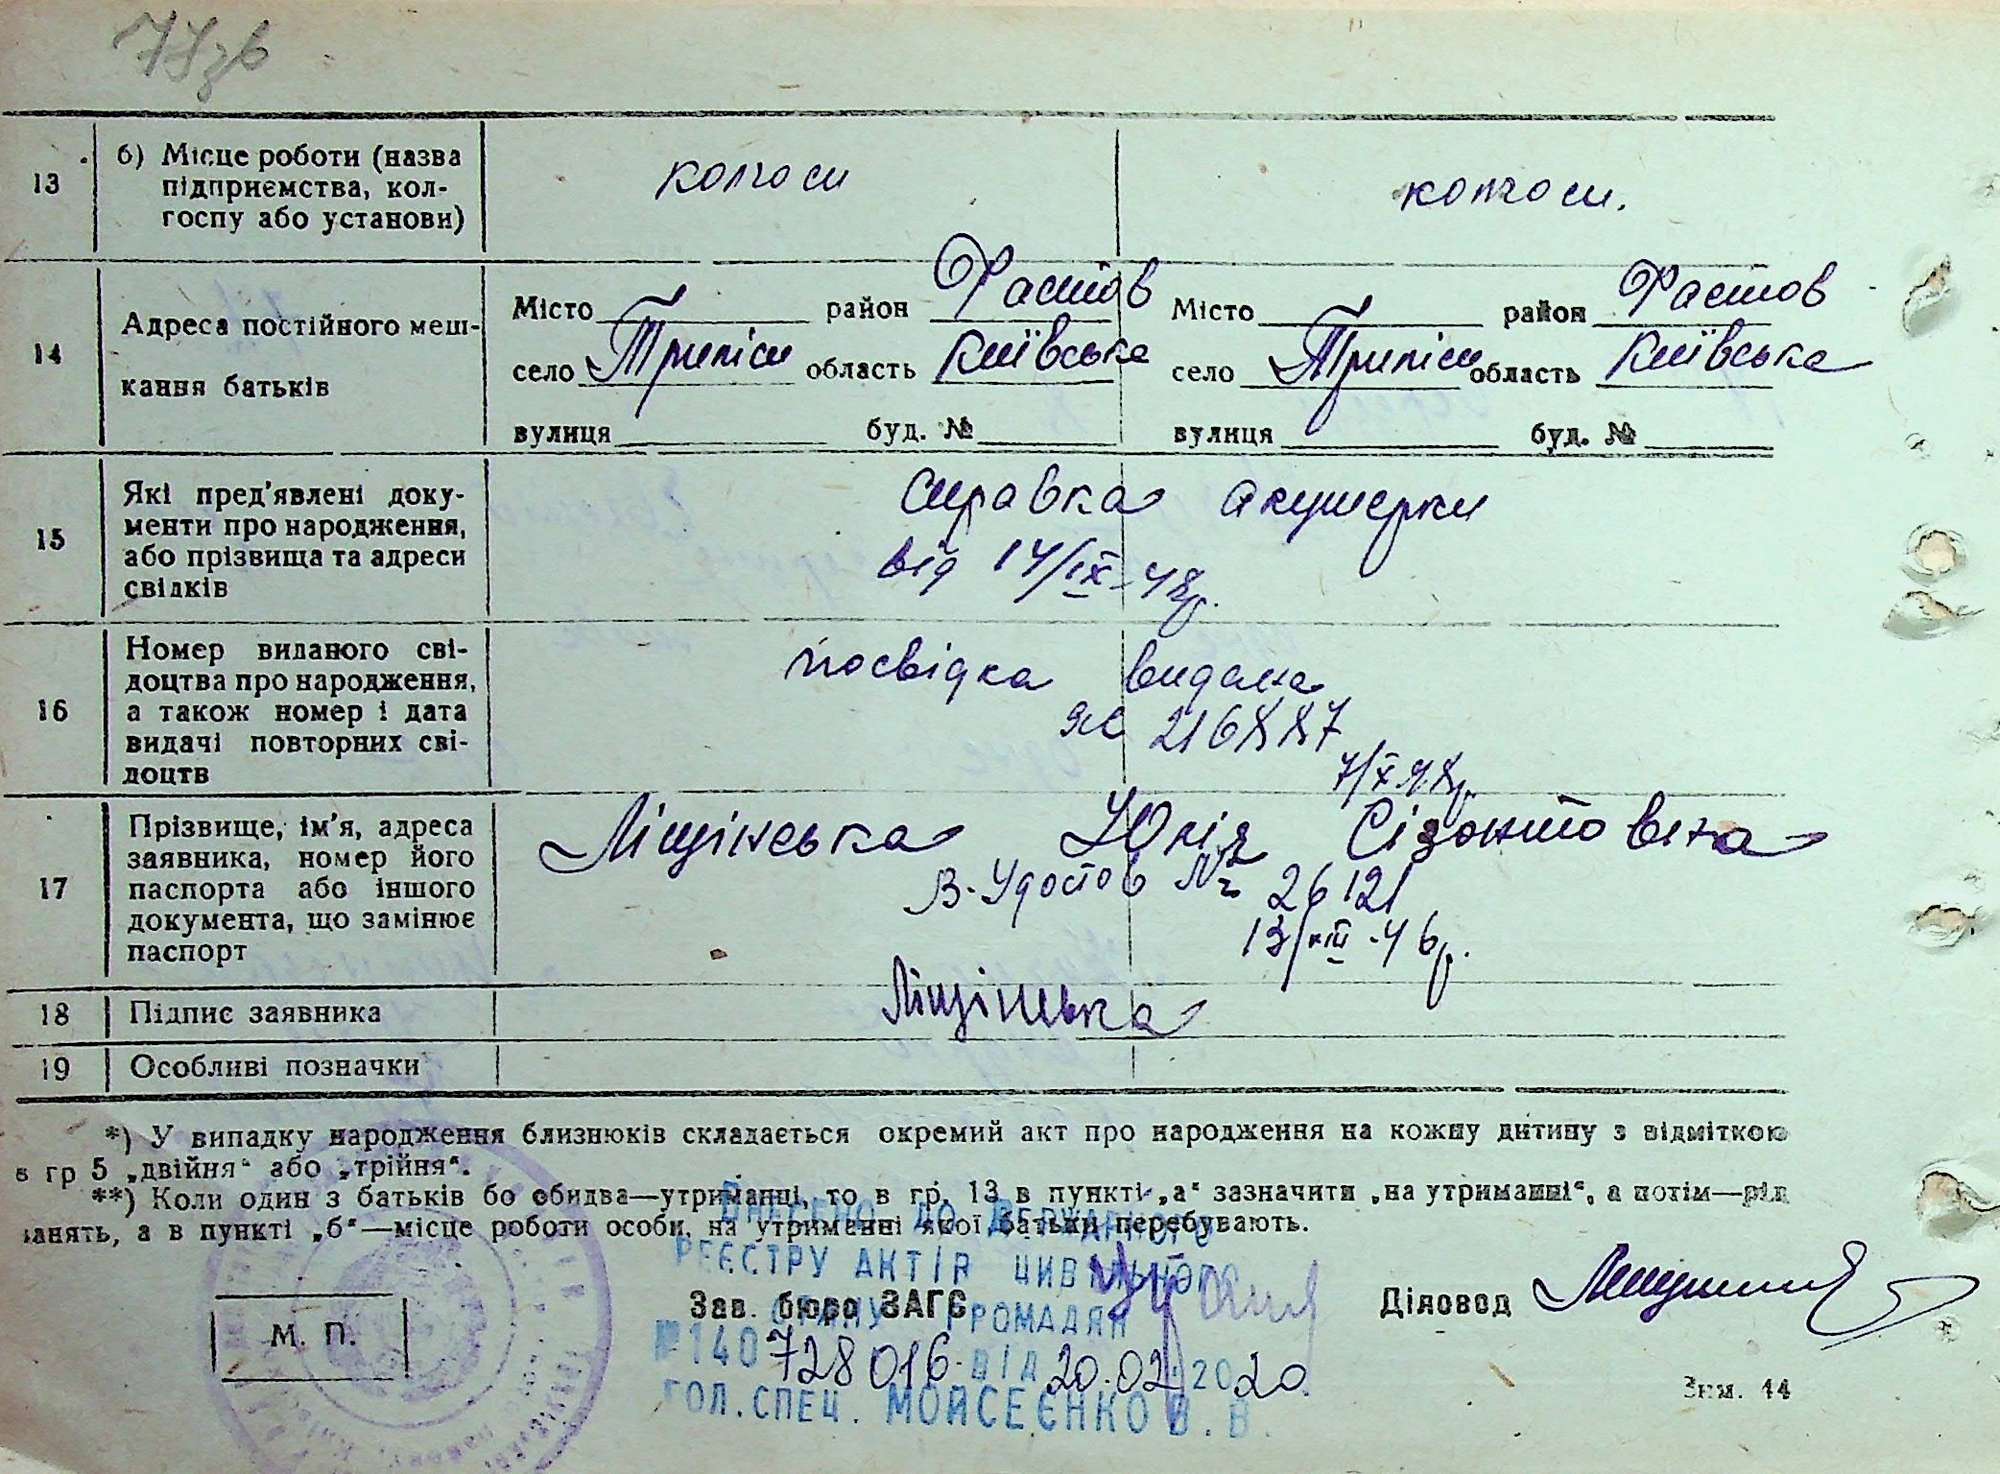 77 зв
13
б) Місце роботи (назва
підприємства, кол-
госпу або установи)
колгосп
колгосп.
14
Адреса постійного меш-
кання батьків
Місто район Фастов
село Трипіси область Київська
вулиця буд. №
Місто район Фастов
село Трипіси область Київська
вулиця буд. №
15
Які пред'явлені доку-
менти про народження,
або прізвища та адреси
свідків
справка акушерки
від 14/IX-48р.
16
Номер виданого сві-
доцтва про народження,
а також номер і дата
видачі повторних сві-
доцтв
посвідка видана
216887
7/X 48р.
17
Прізвище, ім'я, адреса
заявника, номер його
паспорта або іншого
документа, що замінює
паспорт
Ліщінська Юлія Сізонтовена
В-Удостов № 26121
46р.
18
Підпис заявника
Ліщінська
19
Особливі позначки
*) У випадку народження близнюків складається окремий акт про народження на кожну дитину з відміткою
в гр 5 „двійня“ або „трійня“.
**) Коли один з батьків бо обидва—утриманці, то в гр. 13 в пункті „а“ зазначити „на утриманні“, а потім—рід
занять, а в пункті „б“—місце роботи особи, на утриманні якої батьки перебувають.
ВНЕСЕНО ДО ДЕРЖАВНОГО
РЕЄСТРУ АКТІВ ЦИВІЛЬНОГО
СТАНУ ГРОМАДЯН
№ 140 728016 ВІД 20.02.2020
ГОЛ.СПЕЦ. МОЙСЕЄНКО В.В.
М. П.
Зав. бюро ЗАГС
Діловод
Знм. 44